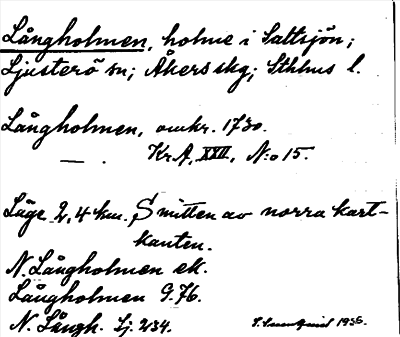 Långholmen, holme i Saltsjön;
Ljusterö sn; Åkers skg; Sthlms l.
Långholmen, omkr. 1730.
— . Kr.A, XXII, N:o 15.
Läge 2,4 km. S mitten av norra kart-
kanten.
N. Långholmen ek.
Långholmen G.76.
N. Långh. Lj. 234.
1935.